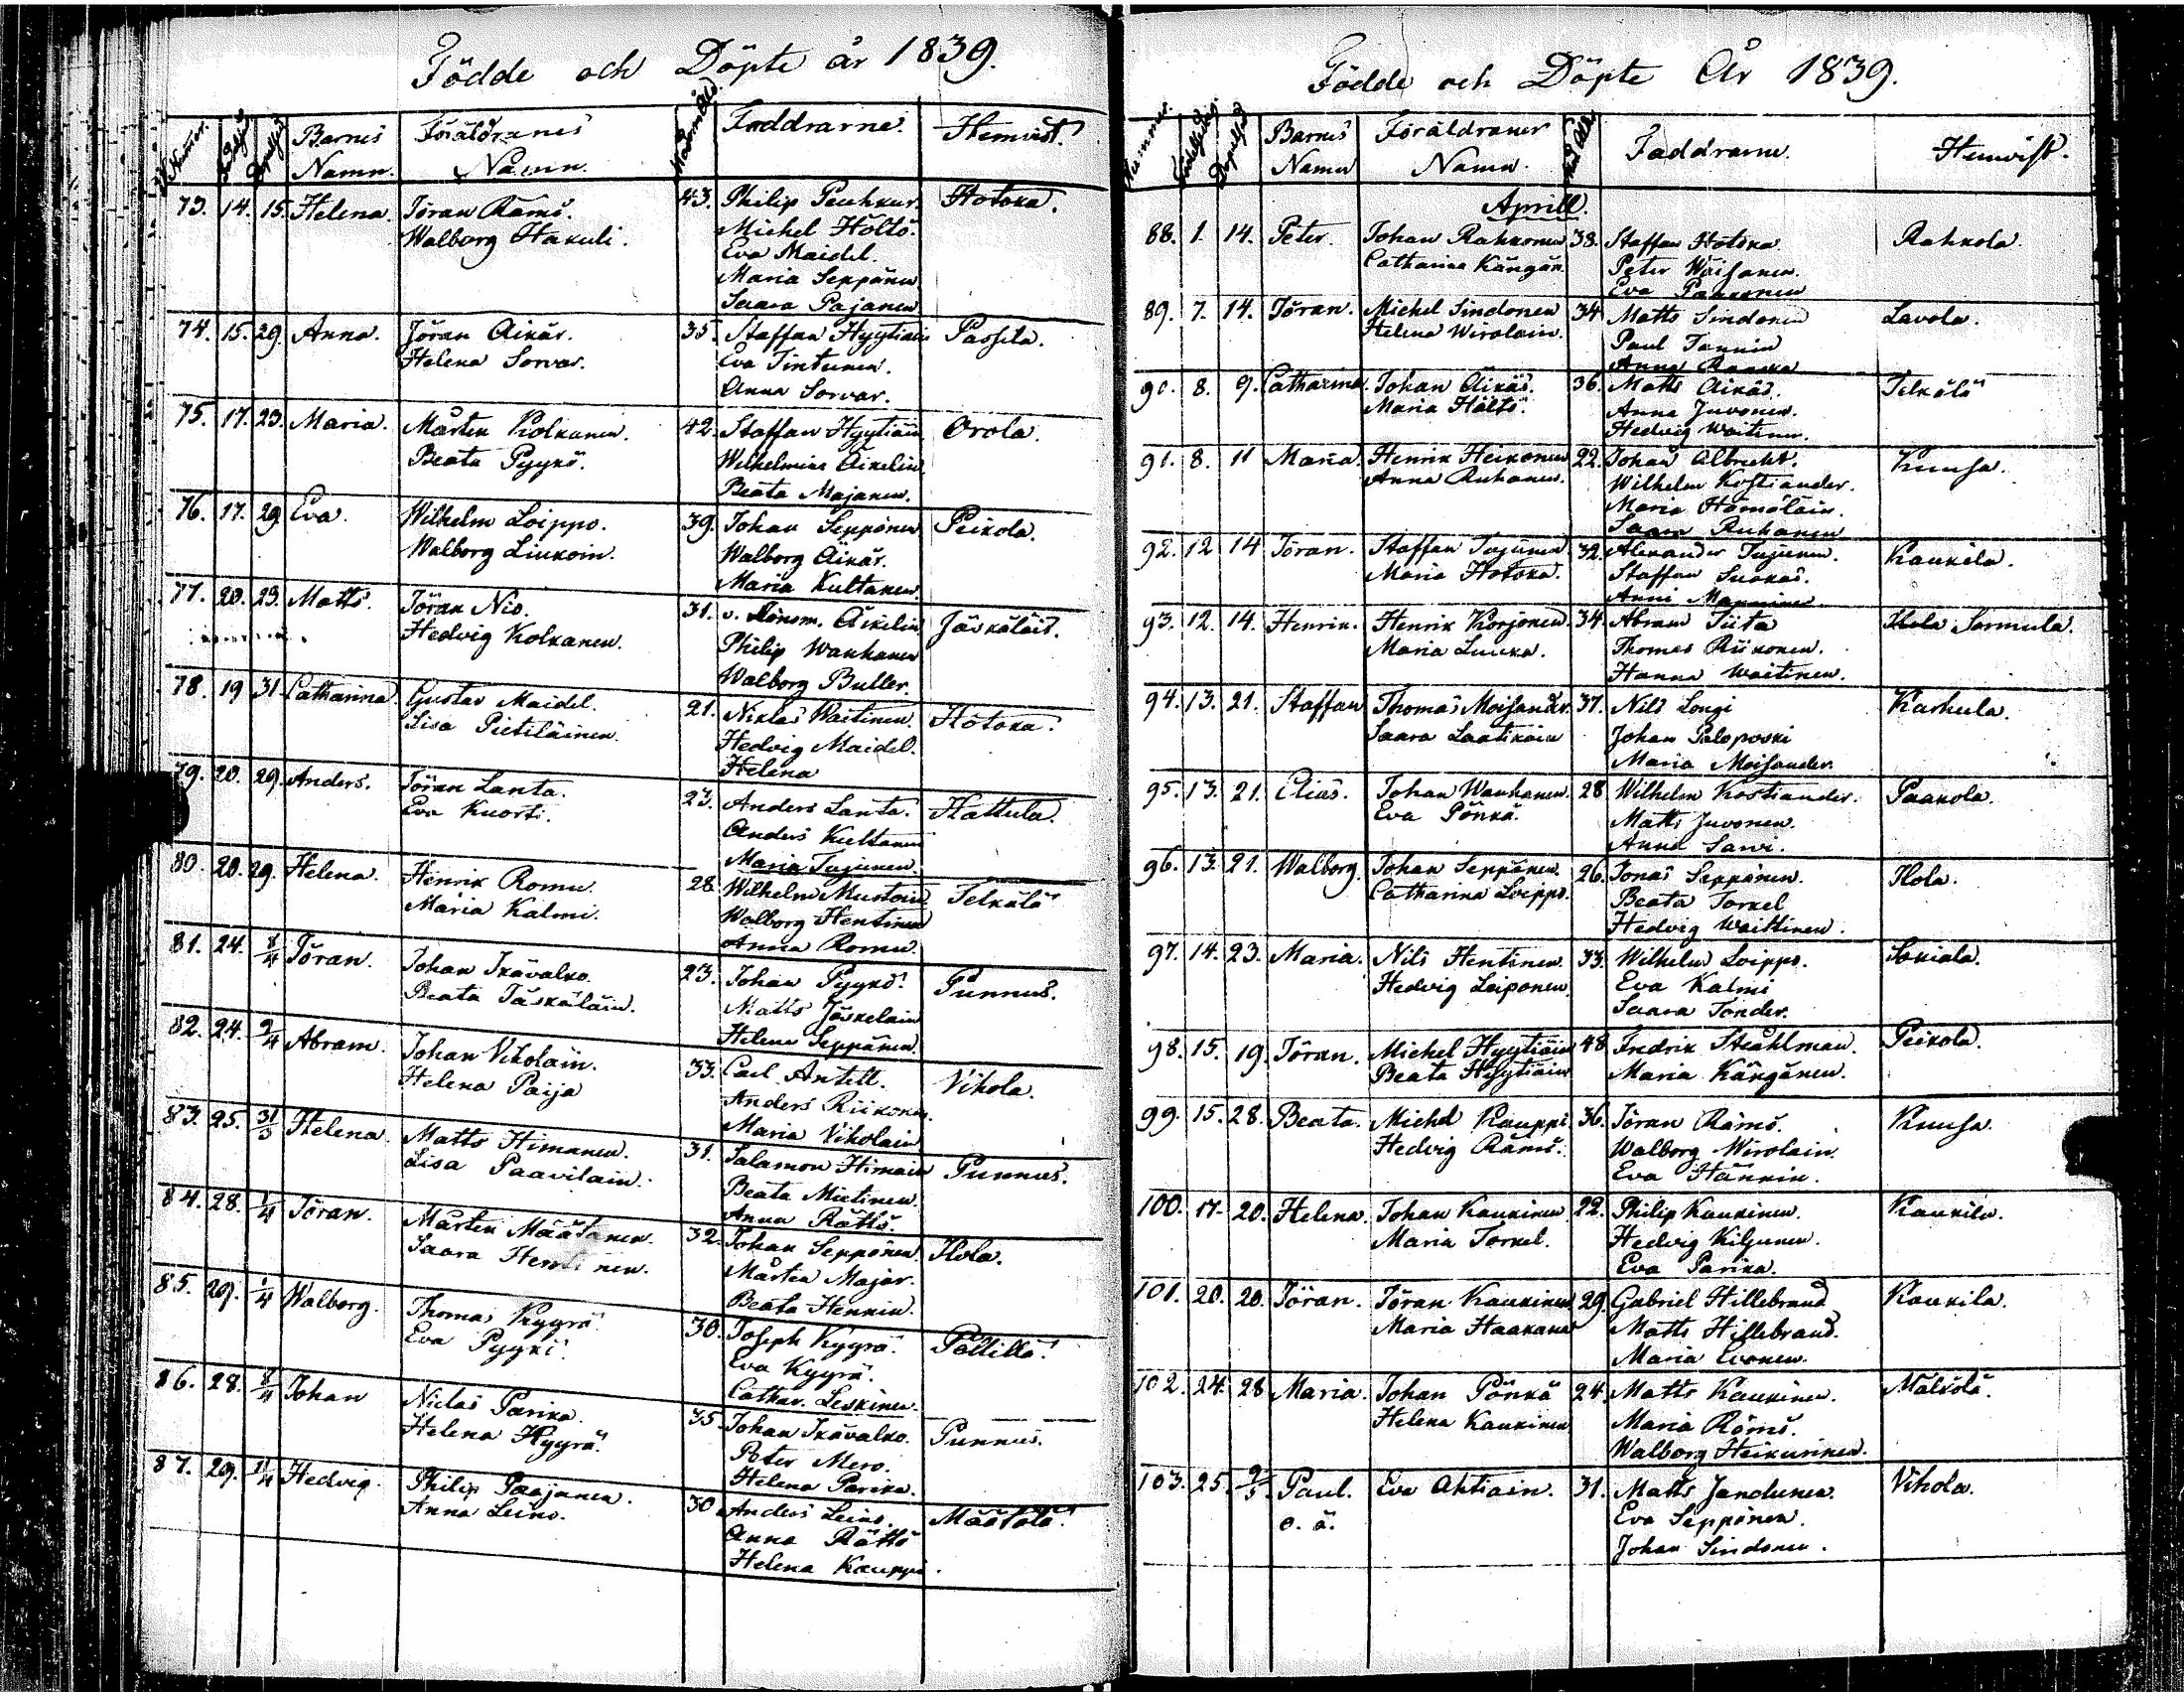 Födde och Döpte år 1839.
Barnets Namn. Föräldrarnes Namn. Faddrarne. Hemvist.
73. 14. 15. Helena. Jöran Rämö. 43. Philip Peuhkur. Hotoka.
Walborg Hakuli. Michel Höltö.
Eva Maidel.
Maria Seppänen
Saara Pajanen
74. 15. 29. Anna. Jöran Äikäs. 35. Staffan Hyytiäin Passila.
Helena Sorvar. Eva Tintunen.
Anna Sorvar.
75. 17. 23. Maria. Mårten Kolkanen. 42. Staffan Hyytiäin Orola.
Beata Pyykö. Wilhelmina Äikelin
Beata Majanen.
76. 17. 29 Eva. Wilhelm Loippo. 39. Johan Seppänen Peikola.
Walborg Liukoin. Walborg Äikäs.
Maria Kultanen
77. 20. 23. Matts. Jöran Nio. 31. v. Länsm. Äikelin Jäskäläis.
Hedvig Kolkanen. Philip Wanhanen
Walborg Buller.
78. 19 31 Catharina Gustav Maidel. 21. Niklas Waitinen. Hotoka.
Lisa Pietiläinen. Hedvig Maidel.
Helena
79. 20. 29. Anders. Jöran Lanta. 23. Anders Lanta. Hattula.
Eva Kuorti. Anders Kultanen
Maria Tujunen.
80. 20. 29. Helena. Henrik Romu. 28 Wilhelm Mustoin Telkälä
Maria Kalmi. Walborg Hentinen
Anna Romu.
81. 24. 8/4 Jöran. Johan Ikävalko. 23. Johan Pyykö. Punnus.
Beata Jäskäläin. Matts Jäskelain
Helena Seppänen.
82. 24. 9/4 Abram. Johan Viholain. 33. Carl Antell. Vihola.
Helena Paija Anders Riikonen.
Maria Viholain
83. 25. 31/3 Helena. Matts Himanen. 31. Salamon Himain Punnus.
Lisa Paavilain. Beata Mietinen.
Anna Rättö.
84. 28. 1/4 Jöran. Mårten Määtänen. 32. Johan Seppänen Ilola.
Saara Hentinen. Mårten Majar.
Beata Hennin.
85. 29. 1/4 Walborg. Thomas Kyyrä. 30. Joseph Kyyrä. Pällilä.
Eva Pyyki. Eva Kyyrä.
Cathar. Leskinen.
86. 28. 8/4 Johan Niclas Parika. 35. Johan Ikävalko. Punnus.
Helena Kyyrä. Peter Mero.
Helena Parika.
87. 29. 11/4 Hedvig. Philip Paajanen. 30 Anders Leino. Määtälä.
Anna Leino. Anna Rättö
Helena Kauppi.
Födde och Döpte År 1839.
Nummer. Barnets Namn Föräldrarnes Namn. Faddrarne. Hemvist.
Aprill.
88. 1. 14. Peter. Johan Rahkonen 38. Staffan Hotoka Rahkola.
Catharina Kängän. Peter Wäisänen.
Eva Paakonen
89. 7. 14. Jöran. Michel Sindonen 34 Matts Sindonen Lavola.
Helena Wirolain. Paul Tannin
Anna Raaka
90. 8. 9. Catharina. Johan Äikäs. 36. Matts Äikäs. Telkälä
Maria Höltö. Anna Juvonen.
Hedvig Waitinen.
91. 8. 11 Maria. Henrik Heikonen 22. Johan Albrecht. Kuusa.
Anna Ruhanen. Wilhelm Kostiander.
Maria Hämäläin.
Saara Ruhanen
92. 12. 14 Jöran. Staffan Tujunen 32. Alexander Tujunen. Kaukila.
Maria Hotoka. Staffan Suokas.
Anni Manninen
93. 12. 14. Henrik. Henrik Korjonen. 34. Abram Tiita Ilola Sormula.
Maria Luuka. Thomas Riikonen.
Hanna Waitinen.
94. 13. 21. Staffan Thomas Moisander. 37. Nils Longi Karhula.
Saara Laatikain Johan Paloposki
Maria Moisander.
95. 13. 21. Elias. Johan Wanhanen. 28 Wilhelm Kostiander. Paakola.
Eva Pönkä. Matts Juvonen.
Anna Savi.
96. 13. 21. Walborg. Johan Seppänen. 26. Jonas Seppänen. Ilola.
Catharina Loippo. Beata Torkel
Hedvig Waittinen.
97. 14. 23. Maria. Nils Hentinen. 33. Wilhelm Loippo. Sokiala.
Hedvig Loiponen. Eva Kalmi
Saara Tonder.
98. 15. 19. Jöran. Michel Hyytiäin 48 Fredrik Stråhlman. Peikola.
Beata Hyytiäin Maria Kängänen.
99. 15. 28. Beata. Michel Kauppi 36. Jöran Rämö. Kuusa.
Hedvig Rämö. Walborg Wirolain.
Eva Hännin.
100. 17. 20. Helena. Johan Kaukinen 22. Philip Kaukinen. Kaukila.
Maria Torkel. Hedvig Kiljunen.
Eva Parika.
101. 20. 20. Jöran. Jöran Kaukinen 29. Gabriel Hillebrand Kaukila.
Maria Haakana Matts Hillebrand.
Maria Evonen.
102. 24. 28 Maria. Johan Pönkä 24. Matts Kaukinen. Mälkölä.
Helena Kaukinen Maria Rämö.
Walborg Heikurinen.
103. 25. 9/5. Paul. Eva Ahtiain. 31. Matts Jandunen. Vihola.
o. ä. Eva Seppänen.
Johan Sindonen.